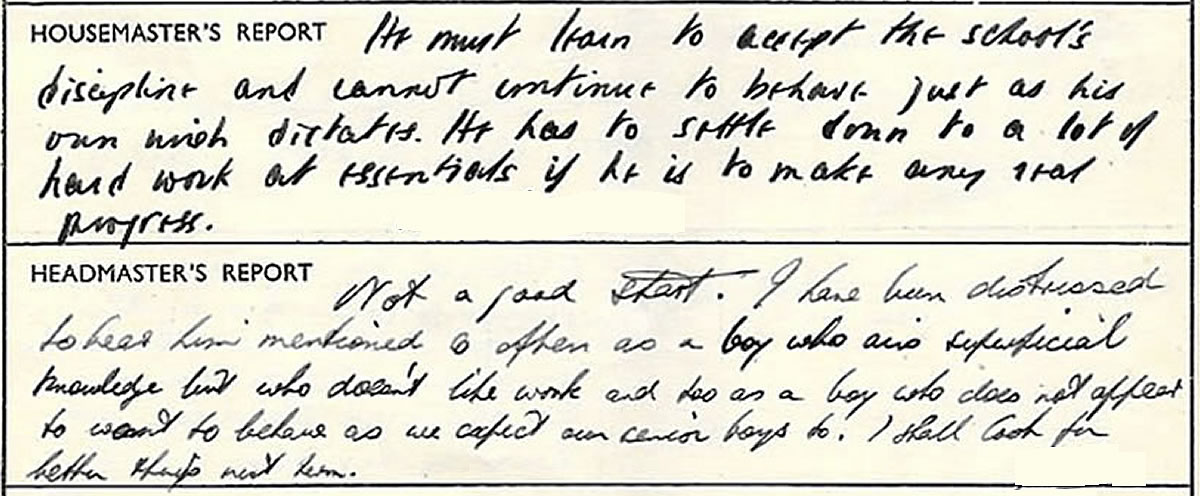 HOUSEMASTER'S REPORT He must learn to accept the school's
discipline and cannot continue to behave just as his
own wish dictates. He has to settle down to a lot of
hard work at essentials if he is to make any real
progress.
HEADMASTER'S REPORT Not a good start. I have been distressed
to hear him mentioned so often as a boy who airs superficial
knowledge but who doesn't like work and too as a boy who does not appear
to want to behave as we expect our senior boys to. I shall look for
better things next term.